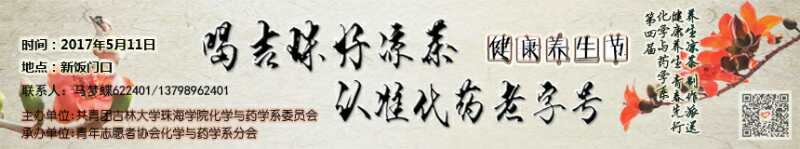 时间：2017年5月11日
地点：新饭门口
联系人：马梦蝶622401/13798962401
主办单位:共青团吉林大学珠海学院化学与药学系委员会
承办单位:青年志愿者协会化学与药学系分会
喝吉珠好凉茶
健康养生节
认准化药老字号
养生凉茶制作派送
健康养生 青春先行
化学与药学系
第四届